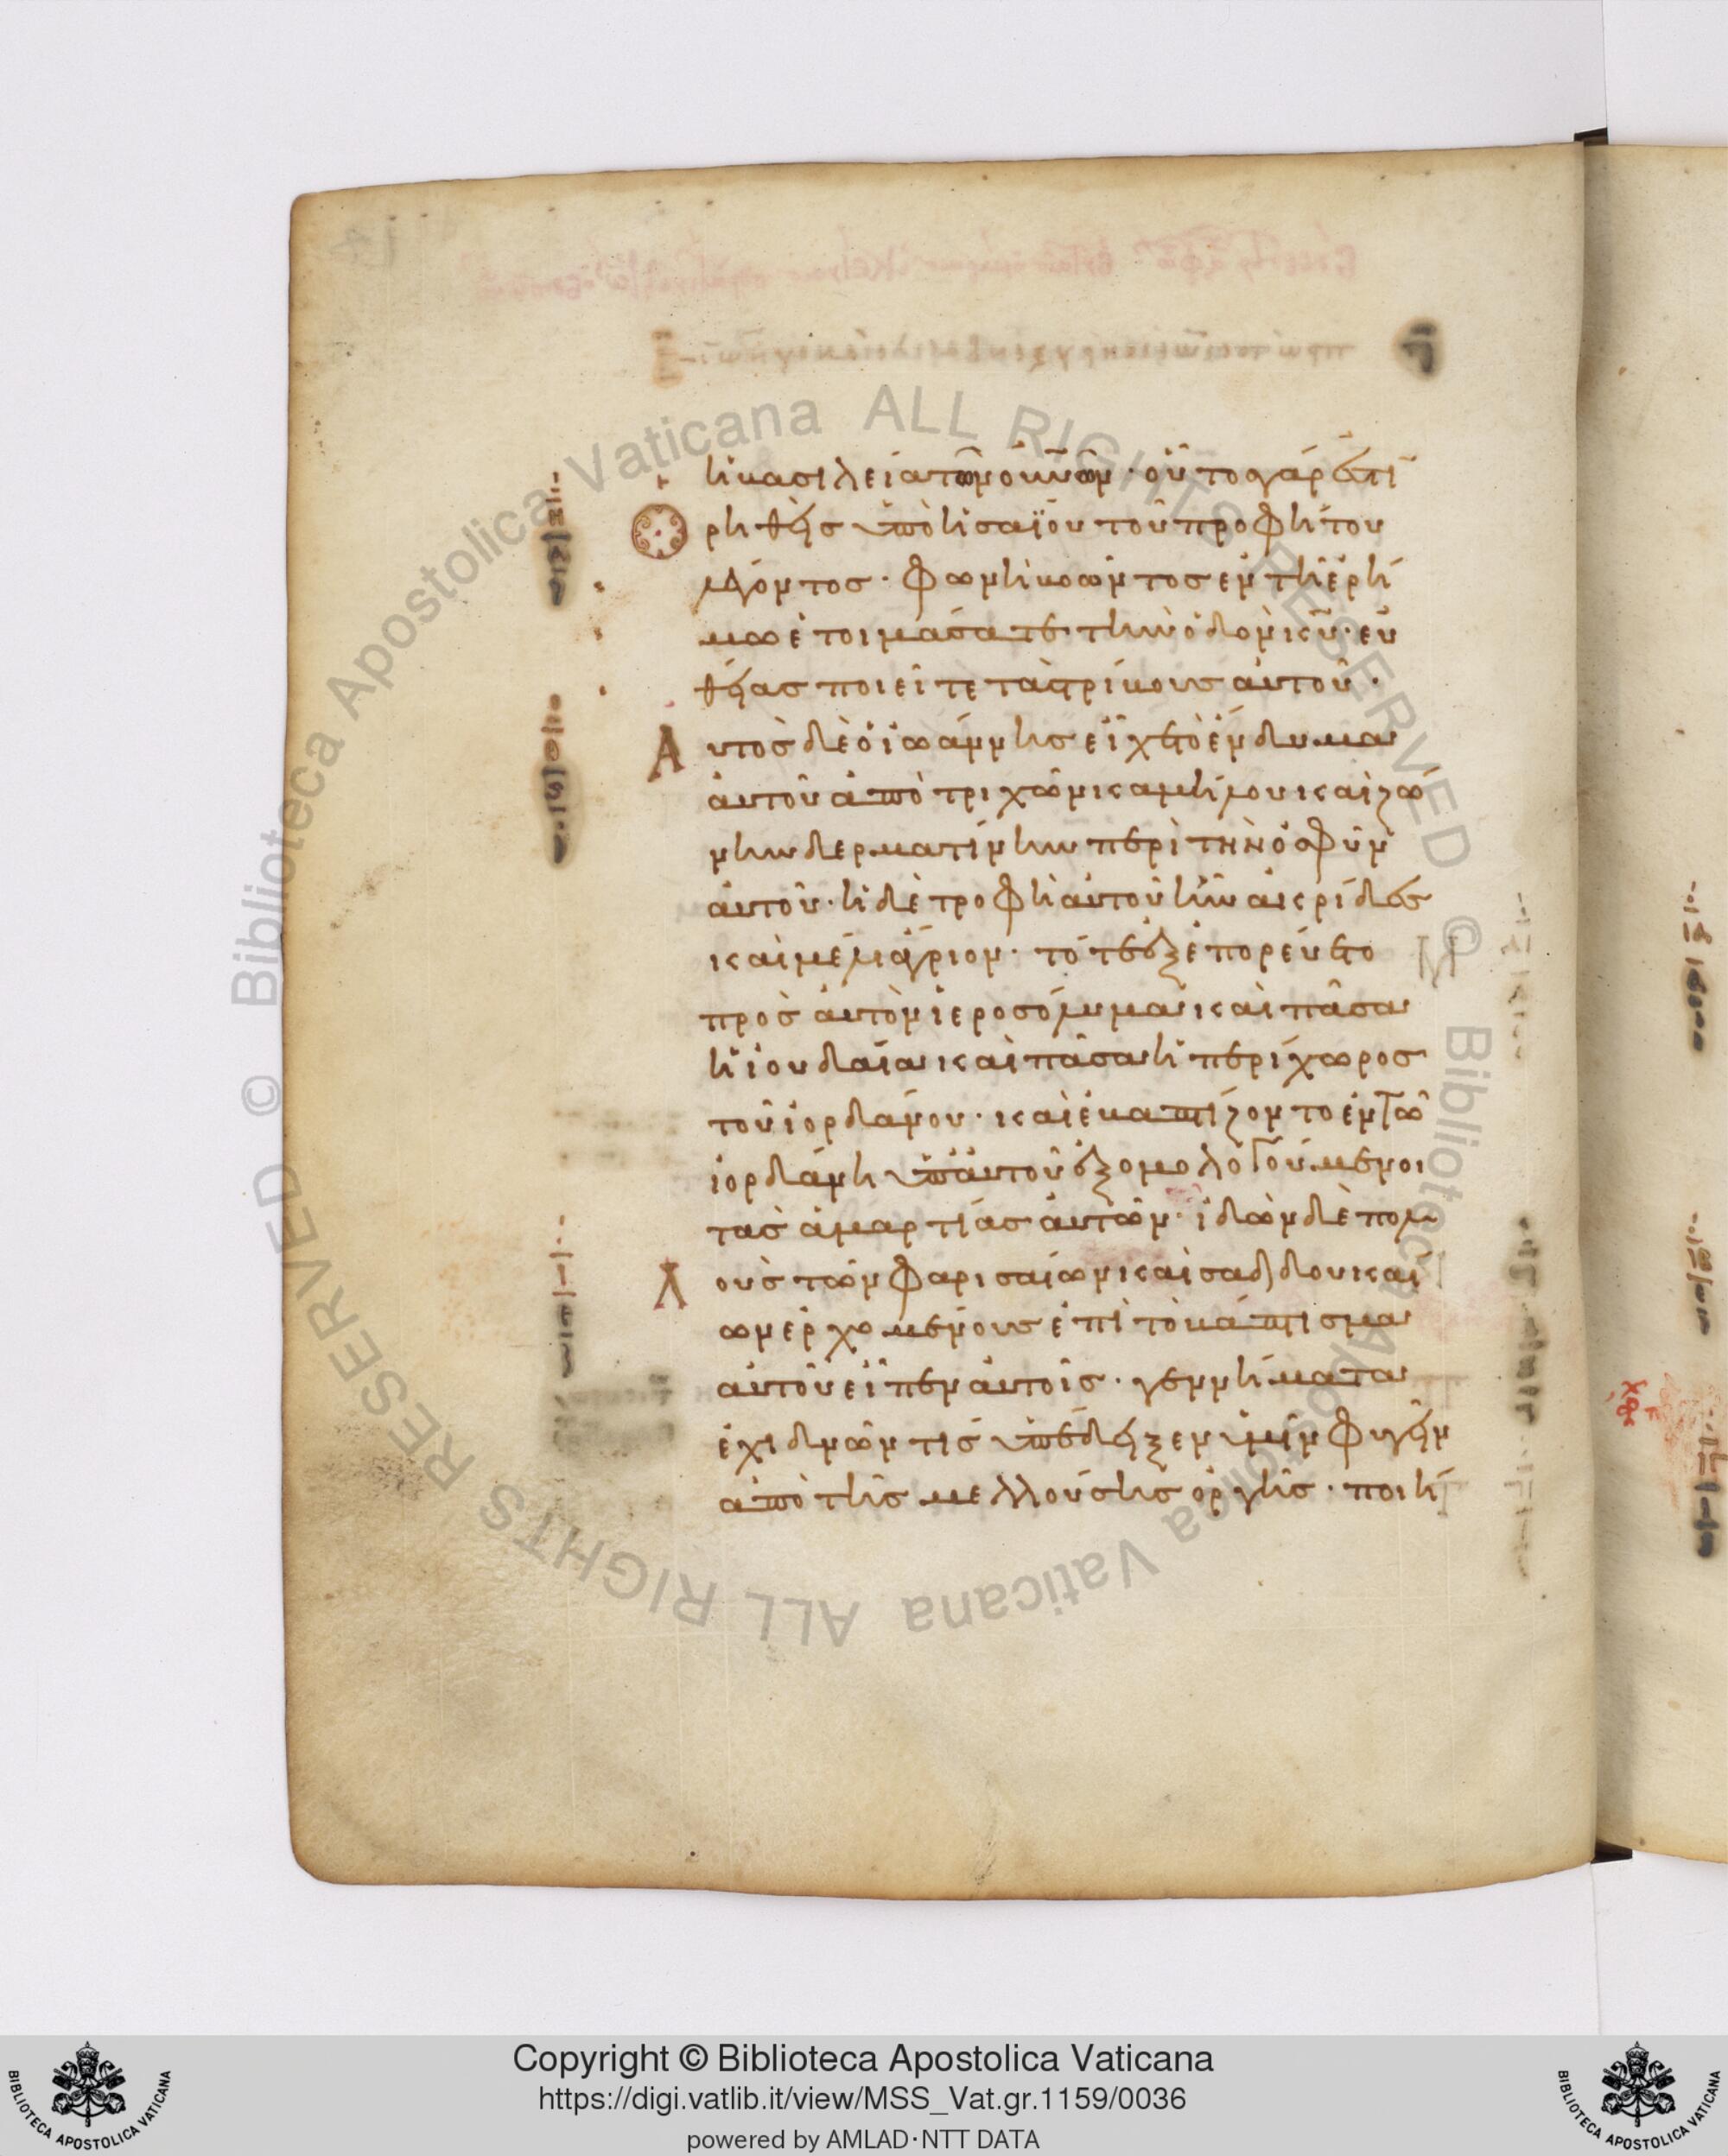 ἡ βασιλεία τῶν οὐνῶν· οὗτος γάρ ἐστι
ρηθεὶς ὑπὸ ἡσαΐου τοῦ προφήτου
λέγοντος· φωνὴ βοῶντος ἐν τῆ ἐρή
μω ἑτοιμάσατε τὴν ὁδὸν κυ· εὐ
θείας ποιεῖτε τὰς τρίβους αὐτοῦ·
Αυτὸς δὲ ὁ ἰωάννης εἶχε τὸ ἔνδυμα
αὐτοῦ ἀπὸ τριχῶν καμήλου καὶ ζώ
νην δερματίνην περὶ τὴν ὀσφῦν
αὐτοῦ· ἡ δὲ τροφὴ αὐτοῦ ἦν ἀκρίδες
καὶ μέλι ἄγριον· τότε ἐξεπορεύετο
πρὸς αὐτὸν ἱεροσόλυμα καὶ πᾶσα
ἡ ἰουδαία καὶ πᾶσα ἡ περίχωρος
τοῦ ἰορδάνου· καὶ ἐβαπτίζοντο ἐν τῶ
ἰορδάνη ὑπ' αὐτοῦ ἐξομολογούμενοι
τὰς ἁμαρτίας αὐτῶν· ἰδὼν δὲ πολ
λοὺς τῶν φαρισαίων καὶ σαδδουκαί
ων ἐρχομένους ἐπὶ τὸ βάπτισμα
αὐτοῦ εἶπεν αὐτοῖς· γεννήματα
ἐχιδνῶν τίς ὑπέδειξεν ὑμῖν φυγεῖν
ἀπὸ τῆς μελλούσης ὀργῆς· ποιή
Copyright © Biblioteca Apostolica Vaticana
https://digi.vatlib.it/view/MSS_Vat.gr.1159/0036
powered by AMLAD·NTT DATA
BIBLIOTECA APOSTOLICA VATICANA
BIBLIOTECA APOSTOLICA VATICANA
© Biblioteca Apostolica Vaticana ALL RIGHTS RESERVED © Biblioteca Apostolica Vaticana ALL RIGHTS RESERVED